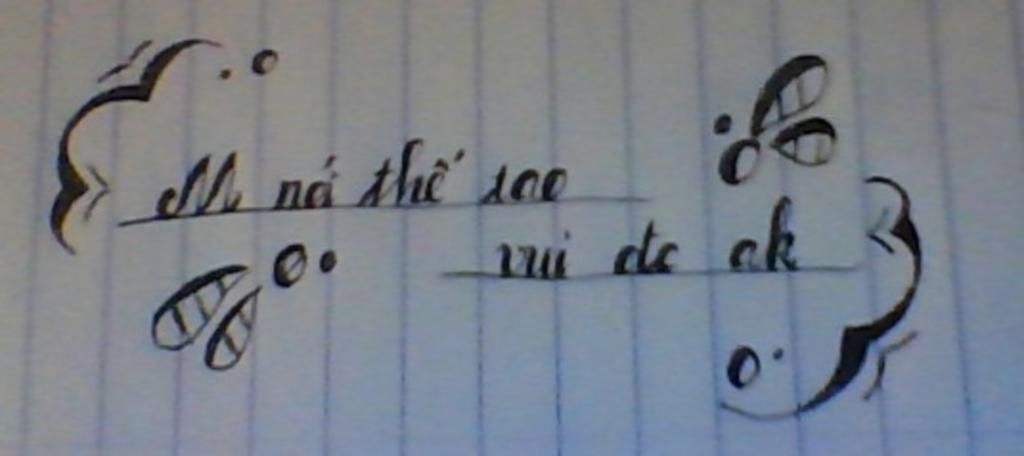 M ná thế sao
vui đc ak